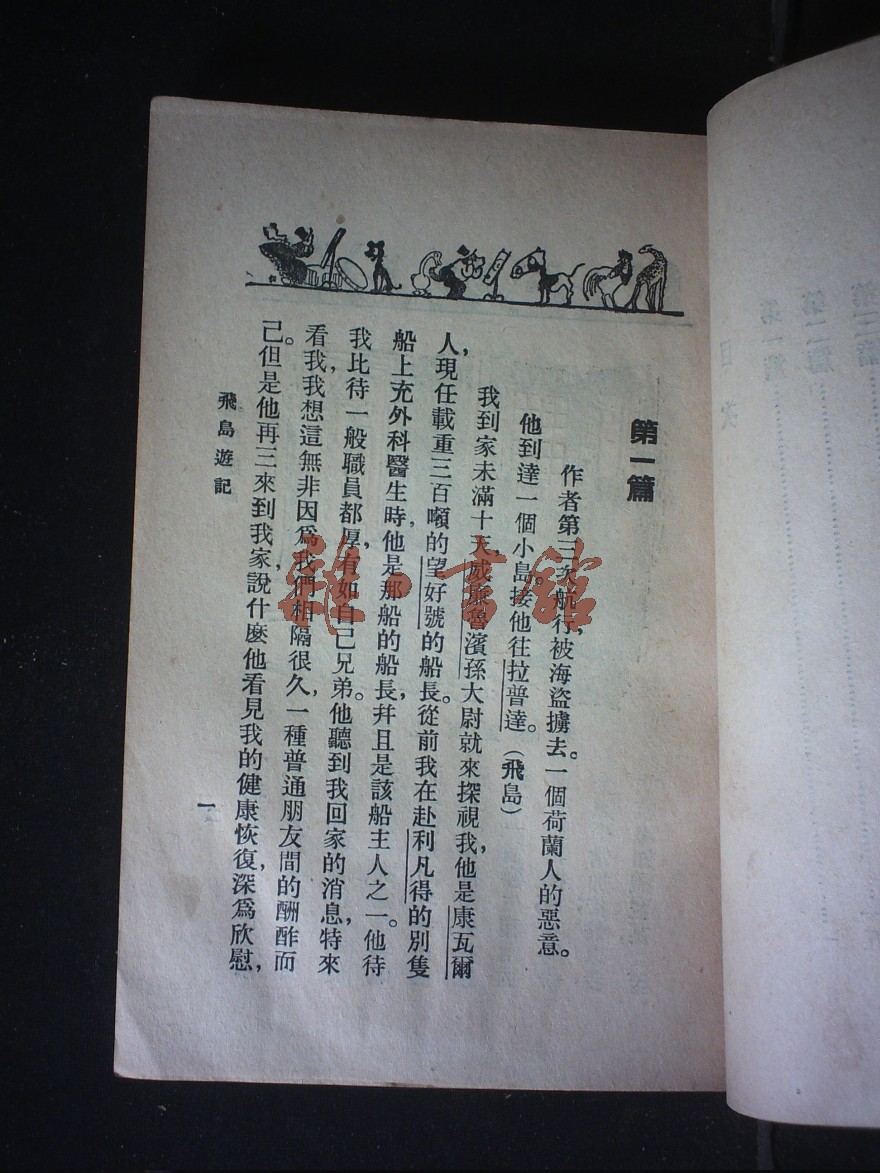 第一篇
作者第三次航行，被海盜擄去。一個荷蘭人的惡意。
他到達一個小島。接他往拉普達。（飛島）
我到家未滿十天，威廉魯濱孫大尉就來探視我，他是康瓦爾
人，現任載重三百噸的望好號的船長。從前我在赴利凡得的別隻
船上充外科醫生時，他是那船的船長，幷且是該船主人之一。他待
我比待一般職員都厚，有如自己兄弟。他聽到我回家的消息，特來
看我，我想這無非因爲我們相隔很久，一種普通朋友間的酬酢而
己。但是他再三來到我家，說什麼他看見我的健康恢復，深爲欣慰，
飛島遊記
一
雜·書館
目次
第一篇
第二篇
第三篇